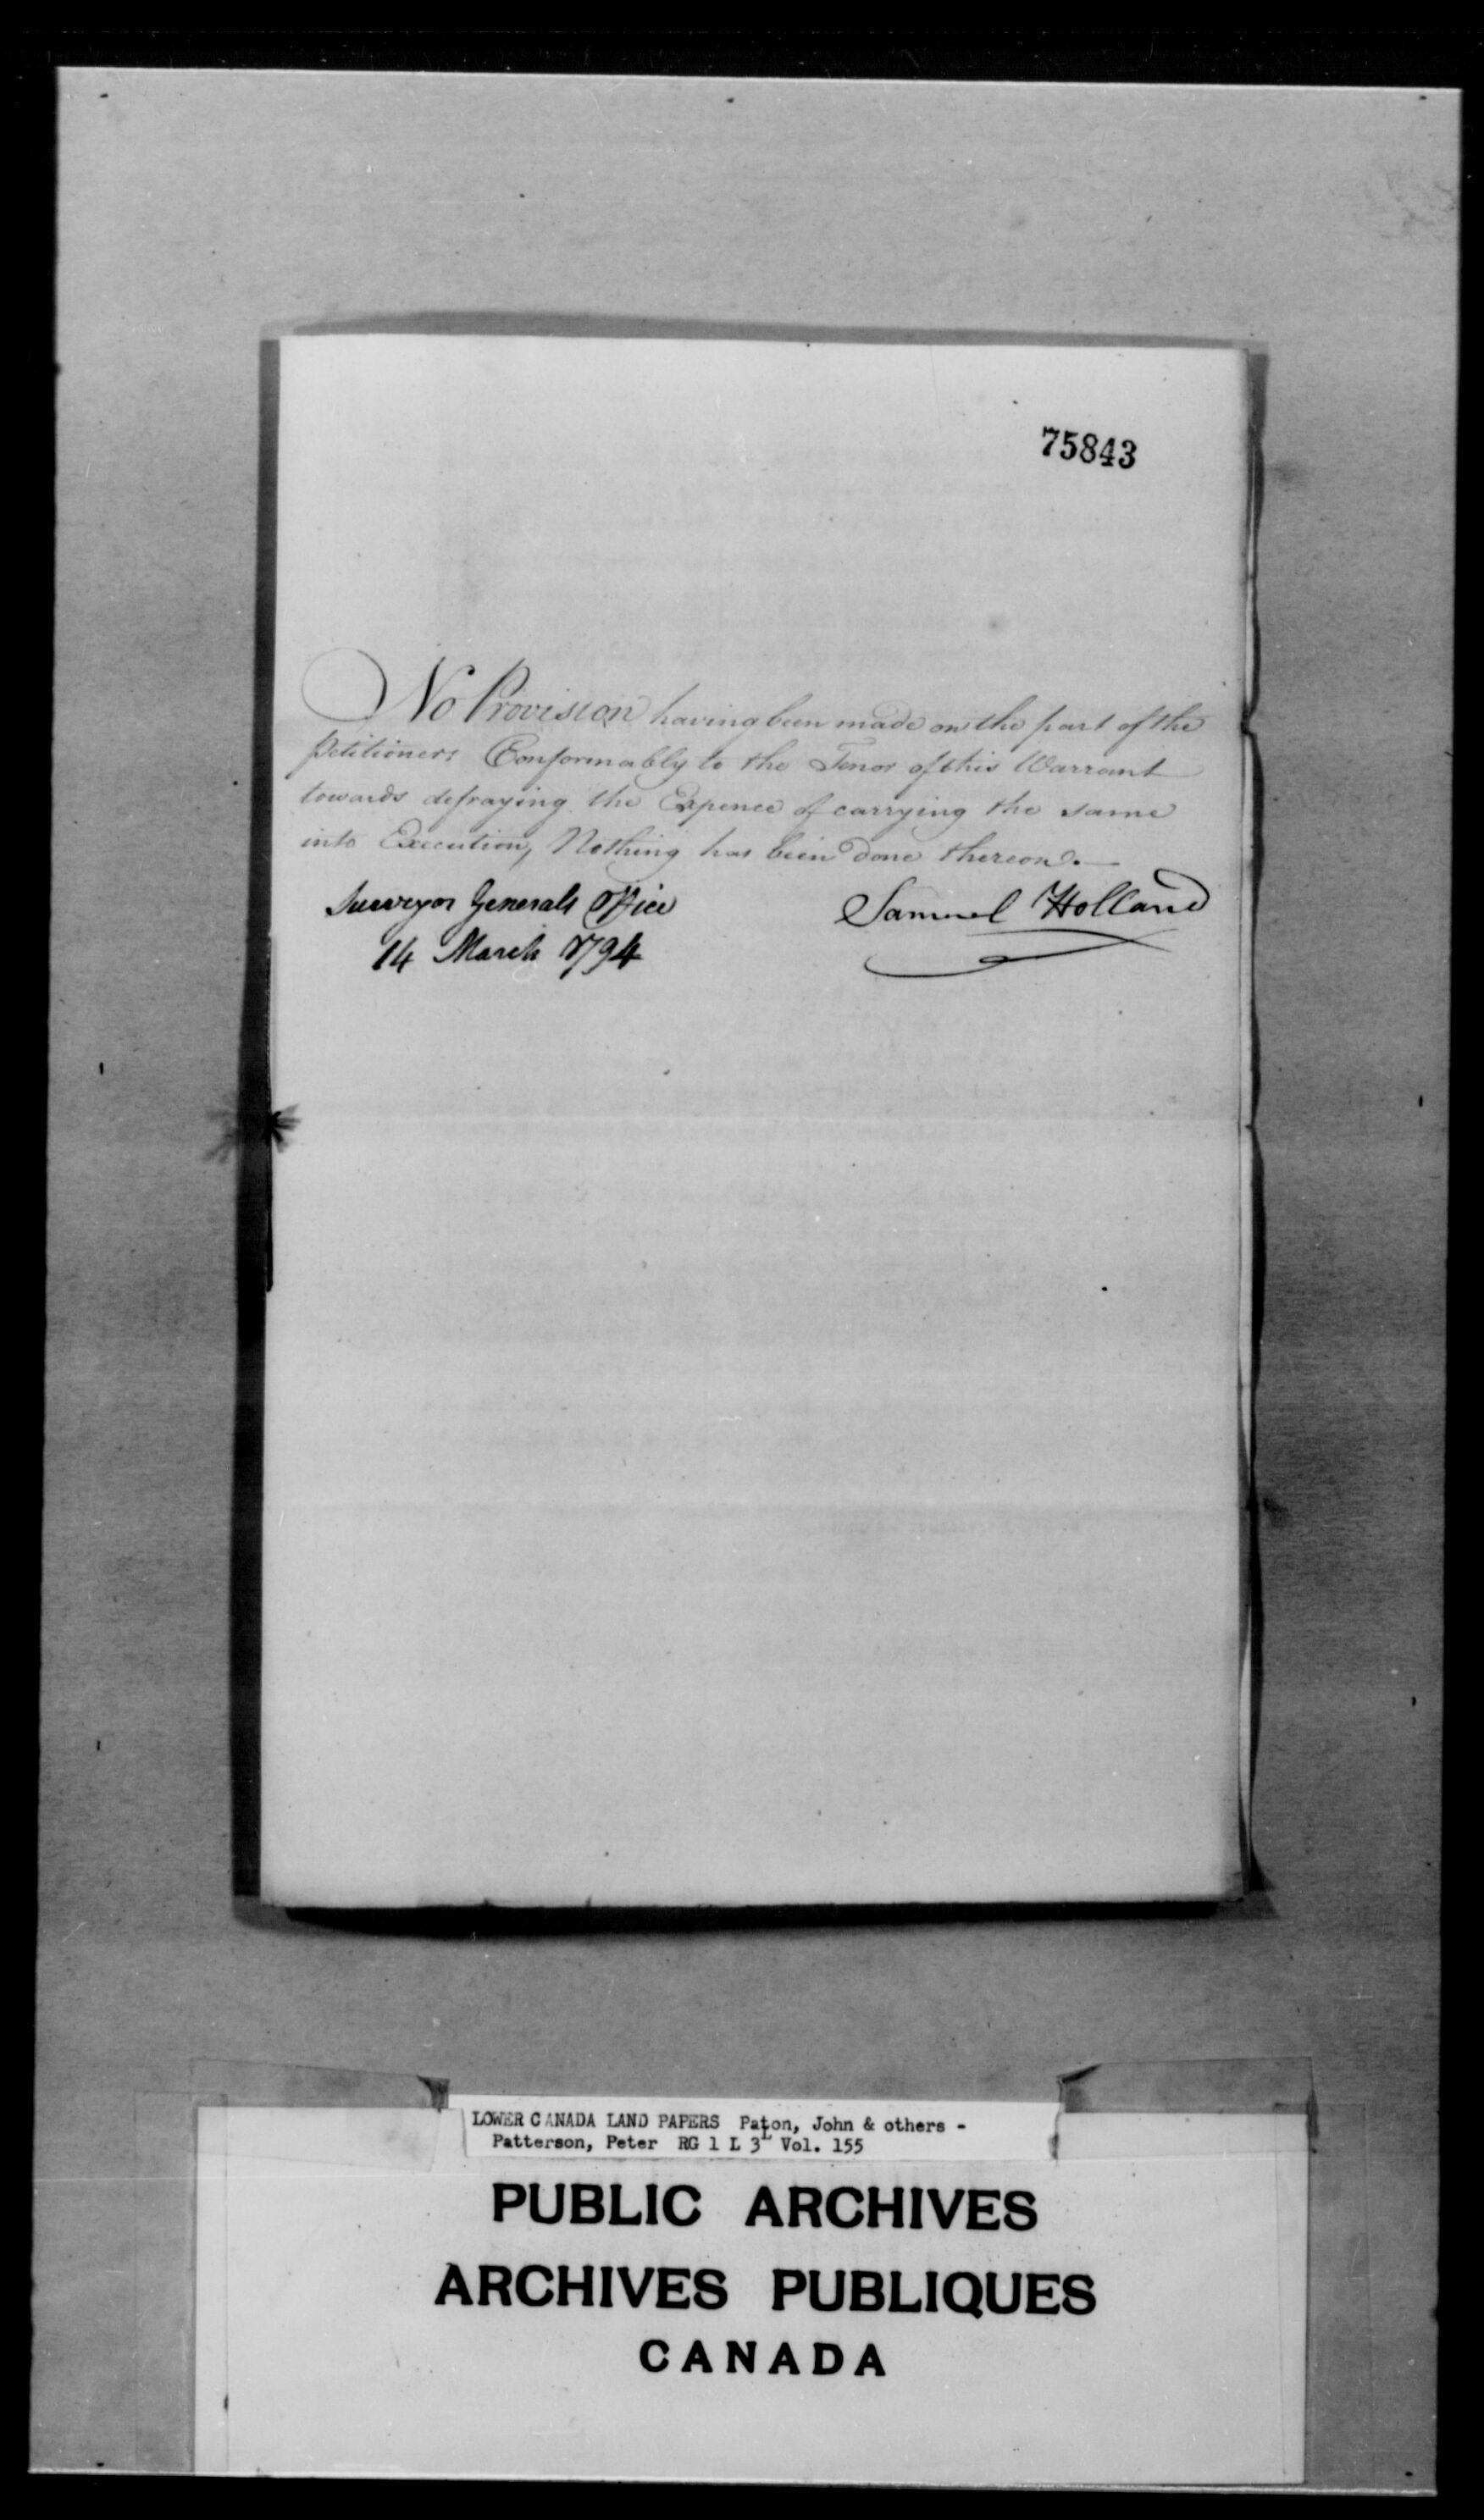 75843
No Provision having been made on the part of the
Petitioners Conformably to the Tenor of this Warrant
towards defraying the Expence of carrying the same
into Execution, Nothing has been done thereon.—
Surveyor Generals Office
14 March 1794
Samuel Holland
LOWER CANADA LAND PAPERS Paton, John & others -
Patterson, Peter RG 1 L 3L Vol. 155
PUBLIC ARCHIVES
ARCHIVES PUBLIQUES
CANADA